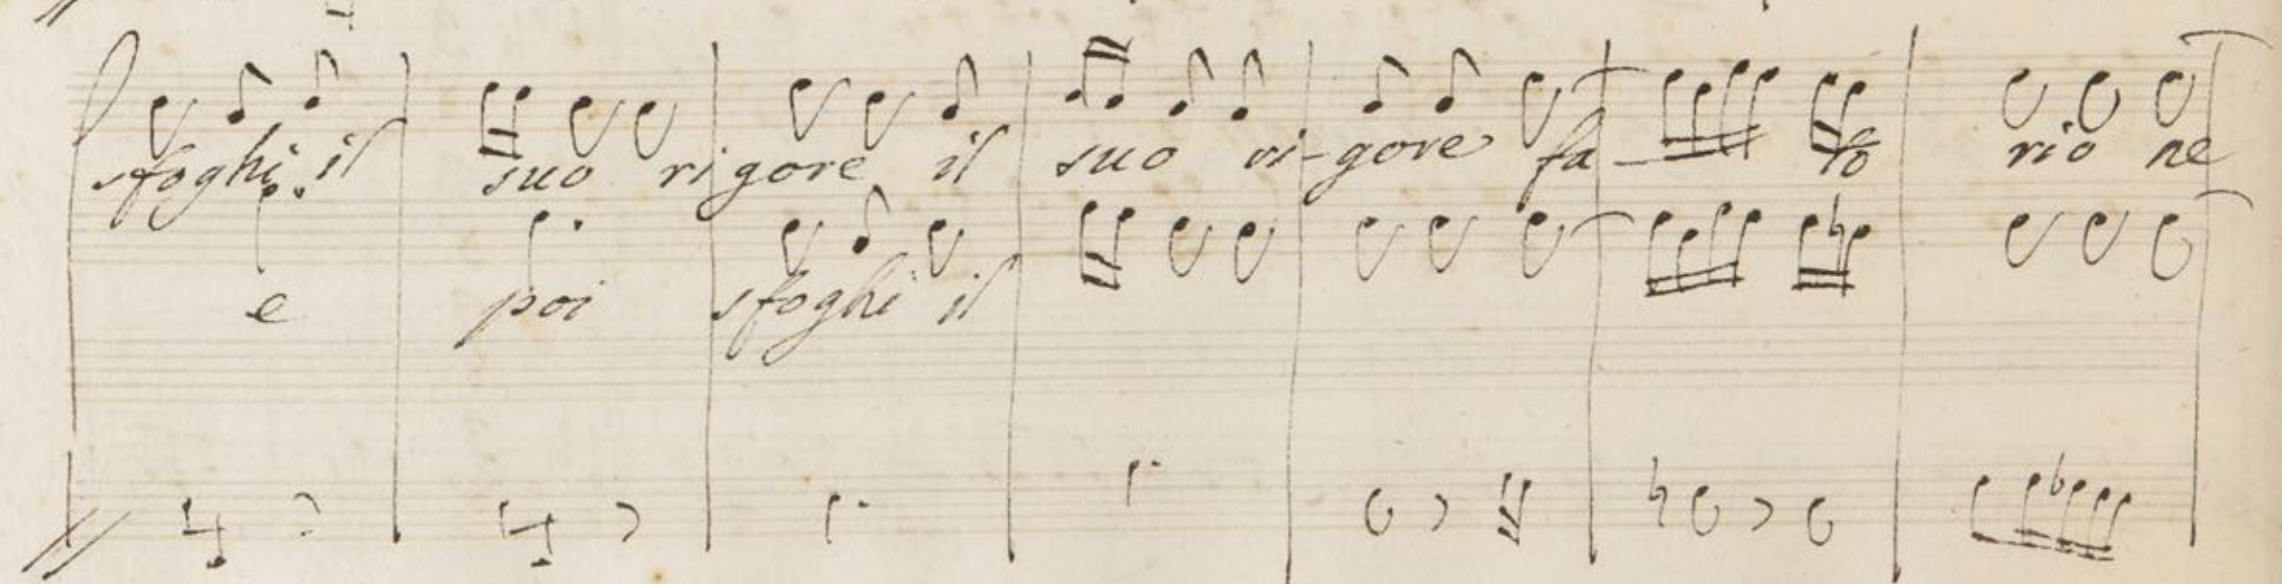 sfoghi il suo rigore il suo ri-gore fa- to rio ne
e poi sfoghi il